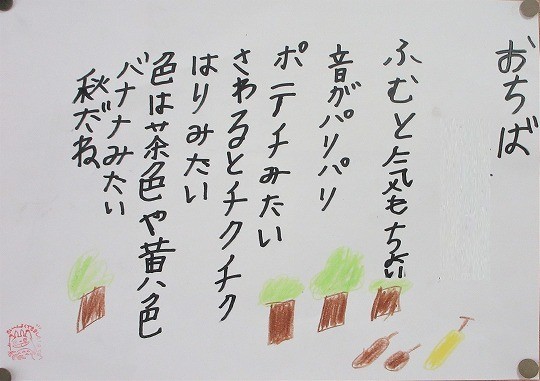 おちば
ふむと気もちいい
音がパリパリ
ポテチみたい
さわるとチクチク
はりみたい
色は茶色や黄色
バナナみたい
秋だね